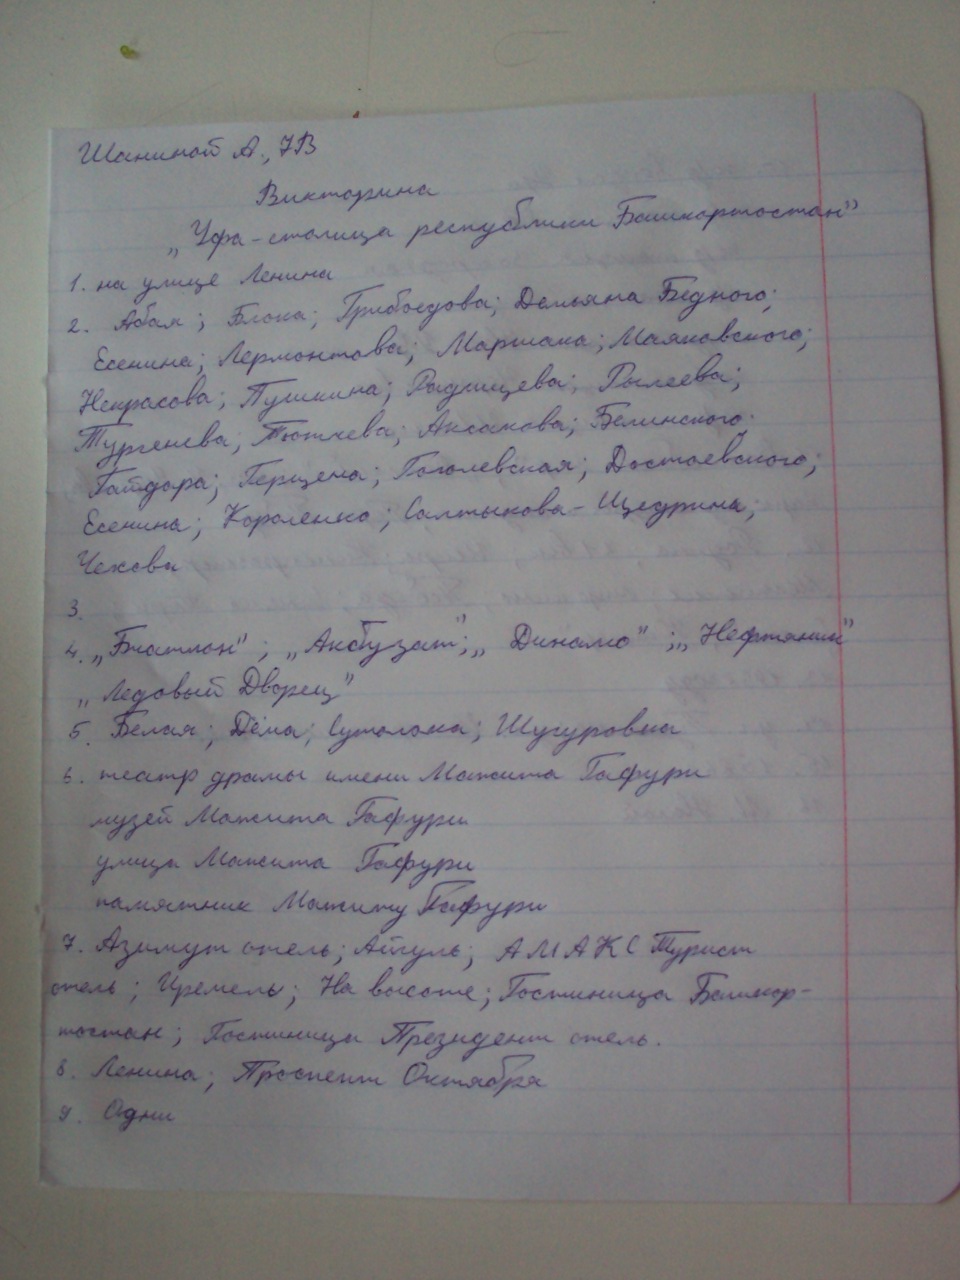 Шаниной А., 7В
Викторина
„Уфа-столица республики Башкортостан"
1. на улице Ленина
2. Абая; Блока; Грибоедова; Демьяна Бедного;
Есенина; Лермонтова; Маршака; Маяковского;
Некрасова; Пушкина; Радищева; Рылеева;
Тургенева; Тютчева; Аксакова; Белинского;
Гайдара; Герцена; Гоголевская; Достоевского;
Есенина; Короленко; Салтыкова-Щедрина;
Чехова
3.
4. „Биатлон"; „Акбузат"; „Динамо"; „Нефтяник"
„Ледовый Дворец"
5. Белая; Дёма; Сутолока; Шугуровка
6. театр драмы имени Мажита Гафури
музей Мажита Гафури
улица Мажита Гафури
памятник Мажиту Гафури
7. Азимут отель; Айгуль; АМАКС Турист
отель; Иремель; На высоте; Гостиница Башкор-
тостан; Гостиница Президент отель.
8. Ленина; Проспект Октября
9. Одни